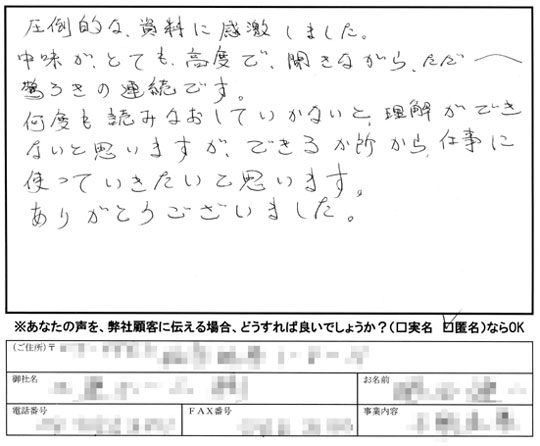 圧倒的な、資料に感激しました。
中味が、とても、高度で、聞きながら、ただ〜
驚ろきの連続です。
何度も読みなおしていかないと、理解ができ
ないと思いますが、できるか所から、仕事に
使っていきたいと思います。
ありがとうございました。
※あなたの声を、弊社顧客に伝える場合、どうすれば良いでしょうか？(□実名 ☑匿名)ならOK
(ご住所)〒
御社名
お名前
電話番号
FAX番号
事業内容